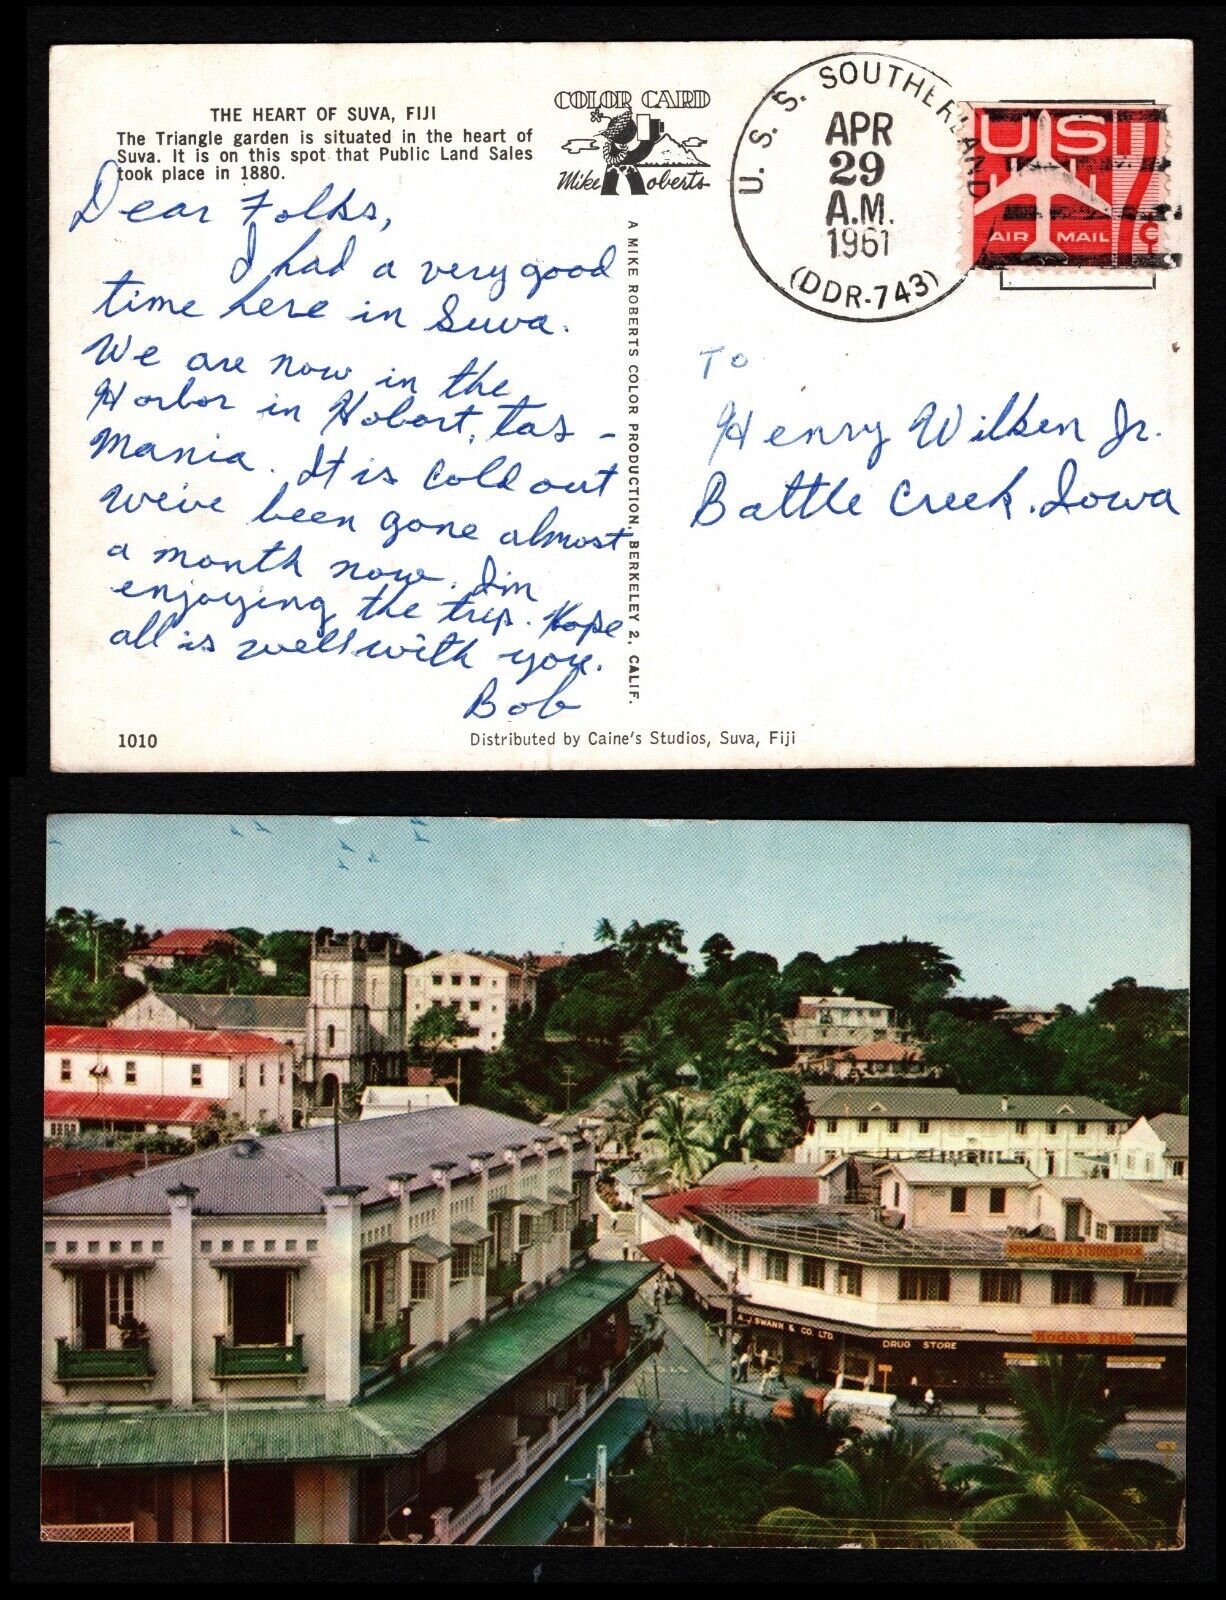 THE HEART OF SUVA, FIJI
The Triangle garden is situated in the heart of
Suva. It is on this spot that Public Land Sales
took place in 1880.
COLOR CARD
Mike Roberts
U.S.S. SOUTHERLAND
APR
29
A.M.
1961
(DDR-743)
US
7¢
AIR MAIL
Dear Folks,
I had a very good
time here in Suva.
We are now in the
Harbor in Hobart, tas-
mania. It is cold out
We've been gone almost
a month now. I'm
enjoying the trip. Hope
all is well with you.
Bob
A MIKE ROBERTS COLOR PRODUCTION, BERKELEY 2, CALIF.
To
Henry Wilken Jr.
Battle Creek, Iowa
1010
Distributed by Caine's Studios, Suva, Fiji
CAINES STUDIOS
A.J. SWANN & CO. LTD.
DRUG STORE
Kodak Film